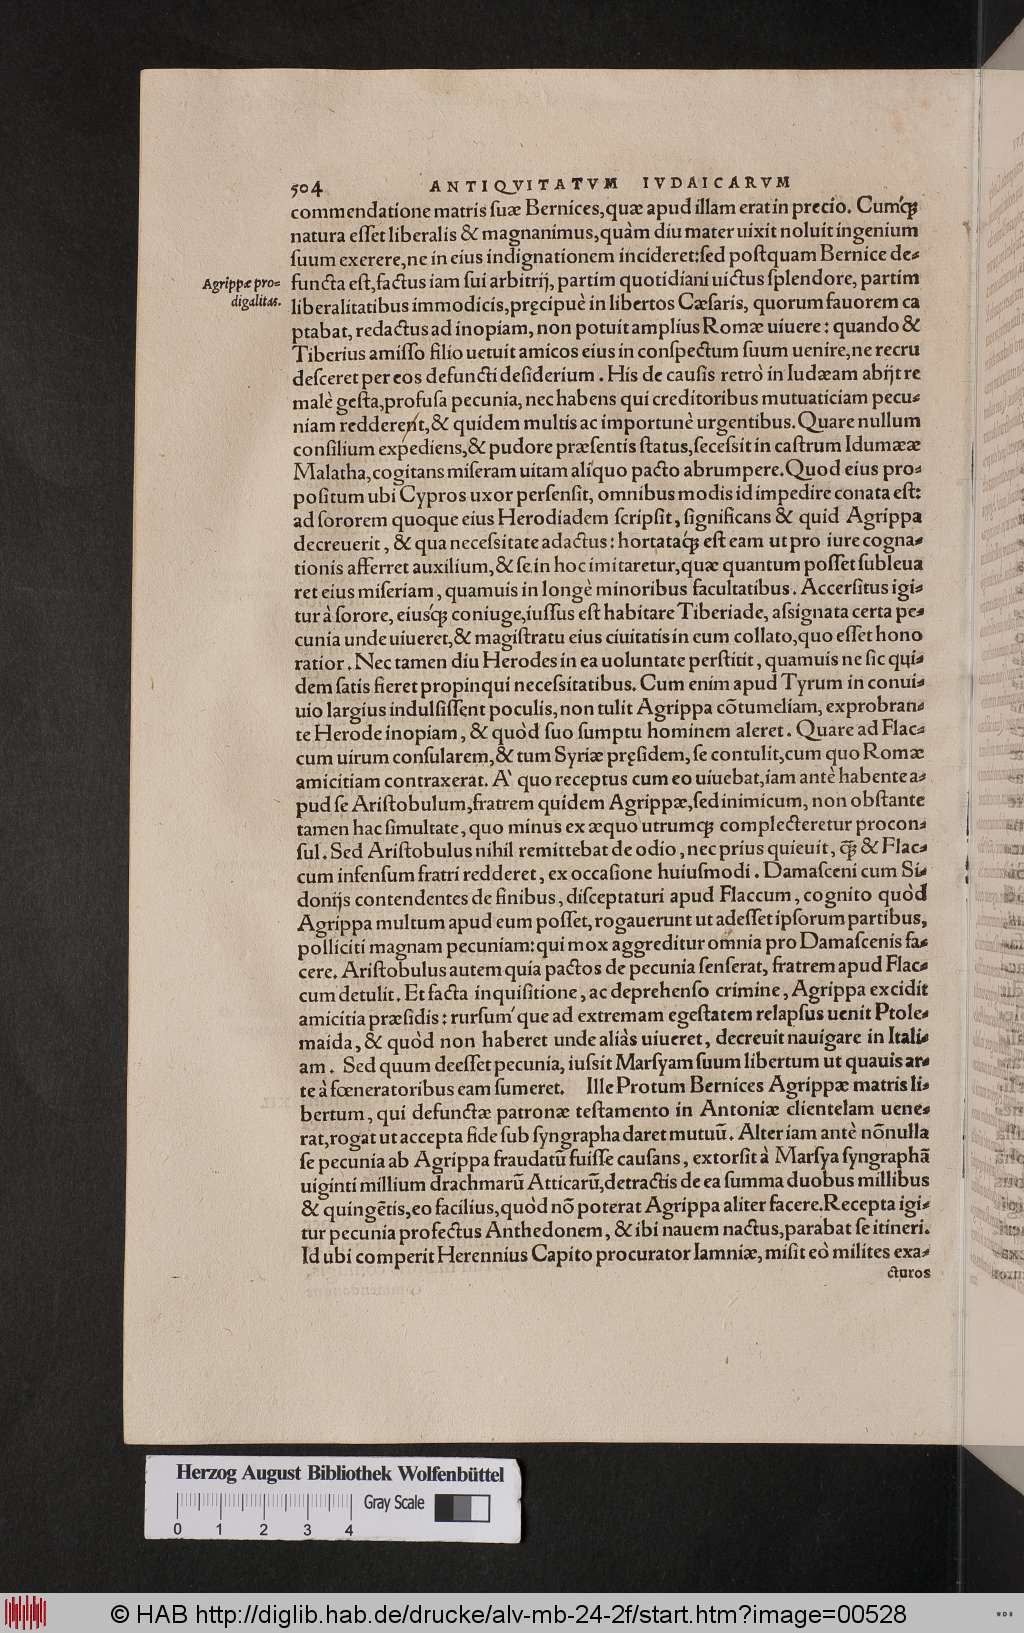 504 ANTIQVITATVM IVDAICARVM
commendatione matris ſuæ Bernices, quæ apud illam erat in precio. Cumq́ꝫ
natura eſſet liberalis & magnanimus, quàm diu mater uixit noluit ingenium
ſuum exerere, ne in eius indignationem incideret: ſed poſtquam Bernice de-
Agrippæ pro-
digalitas.
functa eſt, factus iam ſui arbitrij, partim quotidiani uictus ſplendore, partim
liberalitatibus immodicis, pręcipuè in libertos Cæſaris, quorum fauorem ca
ptabat, redactus ad inopiam, non potuit amplius Romæ uiuere: quando &
Tiberius amiſſo filio uetuit amicos eius in conſpectum ſuum uenire, ne recru
deſceret per eos defuncti deſiderium. His de cauſis retrò in Iudæam abijt re
malè geſta, profuſa pecunia, nec habens qui creditoribus mutuaticiam pecu-
niam redderent, & quidem multis ac importunè urgentibus. Quare nullum
conſilium expediens, & pudore præſentis ſtatus, ſeceſsit in caſtrum Idumææ
Malatha, cogitans miſeram uitam aliquo pacto abrumpere. Quod eius pro-
poſitum ubi Cypros uxor perſenſit, omnibus modis id impedire conata eſt:
ad ſororem quoque eius Herodiadem ſcripſit, ſignificans & quid Agrippa
decreuerit, & qua neceſsitate adactus: hortataq́ꝫ eſt eam ut pro iure cogna-
tionis afferret auxilium, & ſe in hoc imitaretur, quæ quantum poſſet ſubleua
ret eius miſeriam, quamuis in longè minoribus facultatibus. Accerſitus igi-
tur à ſorore, eiusq́ꝫ coniuge, iuſſus eſt habitare Tiberiade, aſsignata certa pe-
cunia unde uiueret, & magiſtratu eius ciuitatis in eum collato, quo eſſet hono
ratior. Nec tamen diu Herodes in ea uoluntate perſtitit, quamuis ne ſic qui-
dem ſatis fieret propinqui neceſsitatibus. Cum enim apud Tyrum in conui-
uio largius indulſiſſent poculis, non tulit Agrippa cõtumeliam, exprobran-
te Herode inopiam, & quòd ſuo ſumptu hominem aleret. Quare ad Flac-
cum uirum conſularem, & tum Syriæ pręſidem, ſe contulit, cum quo Romæ
amicitiam contraxerat. A` quo receptus cum eo uiuebat, iam antè habente a-
pud ſe Ariſtobulum, fratrem quidem Agrippæ, ſed inimicum, non obſtante
tamen hac ſimultate, quo minus ex æquo utrumqꝫ complecteretur procon-
ſul. Sed Ariſtobulus nihil remittebat de odio, nec prius quieuit, q̃ꝫ & Flac-
cum infenſum fratri redderet, ex occaſione huiuſmodi. Damaſceni cum Si-
donijs contendentes de finibus, diſceptaturi apud Flaccum, cognito quòd
Agrippa multum apud eum poſſet, rogauerunt ut adeſſet ipſorum partibus,
polliciti magnam pecuniam: qui mox aggreditur omnia pro Damaſcenis fa-
cere. Ariſtobulus autem quia pactos de pecunia ſenſerat, fratrem apud Flac-
cum detulit. Et facta inquiſitione, ac deprehenſo crimine, Agrippa excidit
amicitia præſidis: rurſum´que ad extremam egeſtatem relapſus uenit Ptole-
maida, & quòd non haberet unde aliàs uiueret, decreuit nauigare in Itali-
am. Sed quum deeſſet pecunia, iuſsit Marſyam ſuum libertum ut quauis ar-
te à fœneratoribus eam ſumeret. Ille Protum Bernices Agrippæ matris li-
bertum, qui defunctæ patronæ teſtamento in Antoniæ clientelam uene-
rat, rogat ut accepta fide ſub ſyngrapha daret mutuũ. Alter iam antè nõnulla
ſe pecunia ab Agrippa fraudatũ fuiſſe cauſans, extorſit à Marſya ſyngraphã
uiginti millium drachmarũ Atticarũ, detractis de ea ſumma duobus millibus
& quingẽtis, eo facilius, quòd nõ poterat Agrippa aliter facere. Recepta igi-
tur pecunia profectus Anthedonem, & ibi nauem nactus, parabat ſe itineri.
Id ubi comperit Herennius Capito procurator Iamniæ, miſit eò milites exa-
cturos
Herzog August Bibliothek Wolfenbüttel
Gray Scale
0 1 2 3 4
© HAB http://diglib.hab.de/drucke/alv-mb-24-2f/start.htm?image=00528